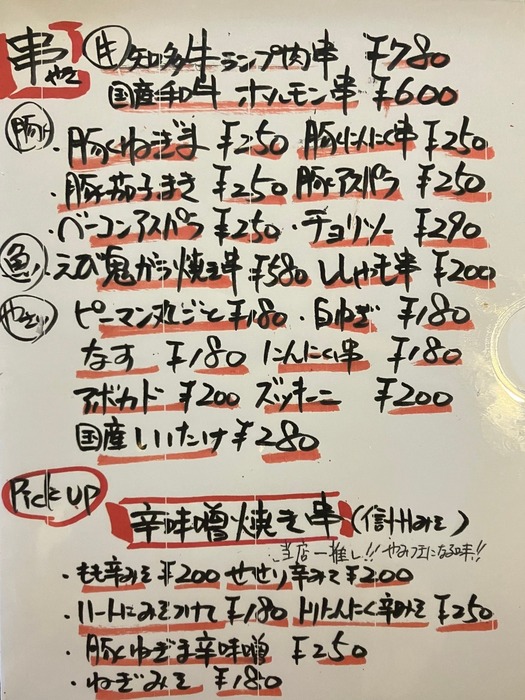 串やき
牛 知多牛ランプ肉串 ¥780
国産和牛 ホルモン串 ¥600
豚
・豚ねぎま ¥250 豚にんにく串 ¥250
・豚茄子まき ¥250 豚アスパラ ¥250
・ベーコンアスパラ ¥250 ・チョリソー ¥290
魚 えび鬼がら焼き串 ¥580 ししゃも串 ¥200
やさい ピーマン丸ごと ¥180 ・白ねぎ ¥180
なす ¥180 にんにく串 ¥180
アボカド ¥200 ズッキーニ ¥200
国産しいたけ ¥280
Pick UP
辛味噌焼き串(信州みそ)
当店一推し!!やみつきになる味!!
・もも辛みそ ¥200 せせり辛みそ ¥200
・ハートにみそつけて ¥180 トリにんにく辛みそ ¥250
・豚ねぎま辛味噌 ¥250
・ねぎみそ ¥180